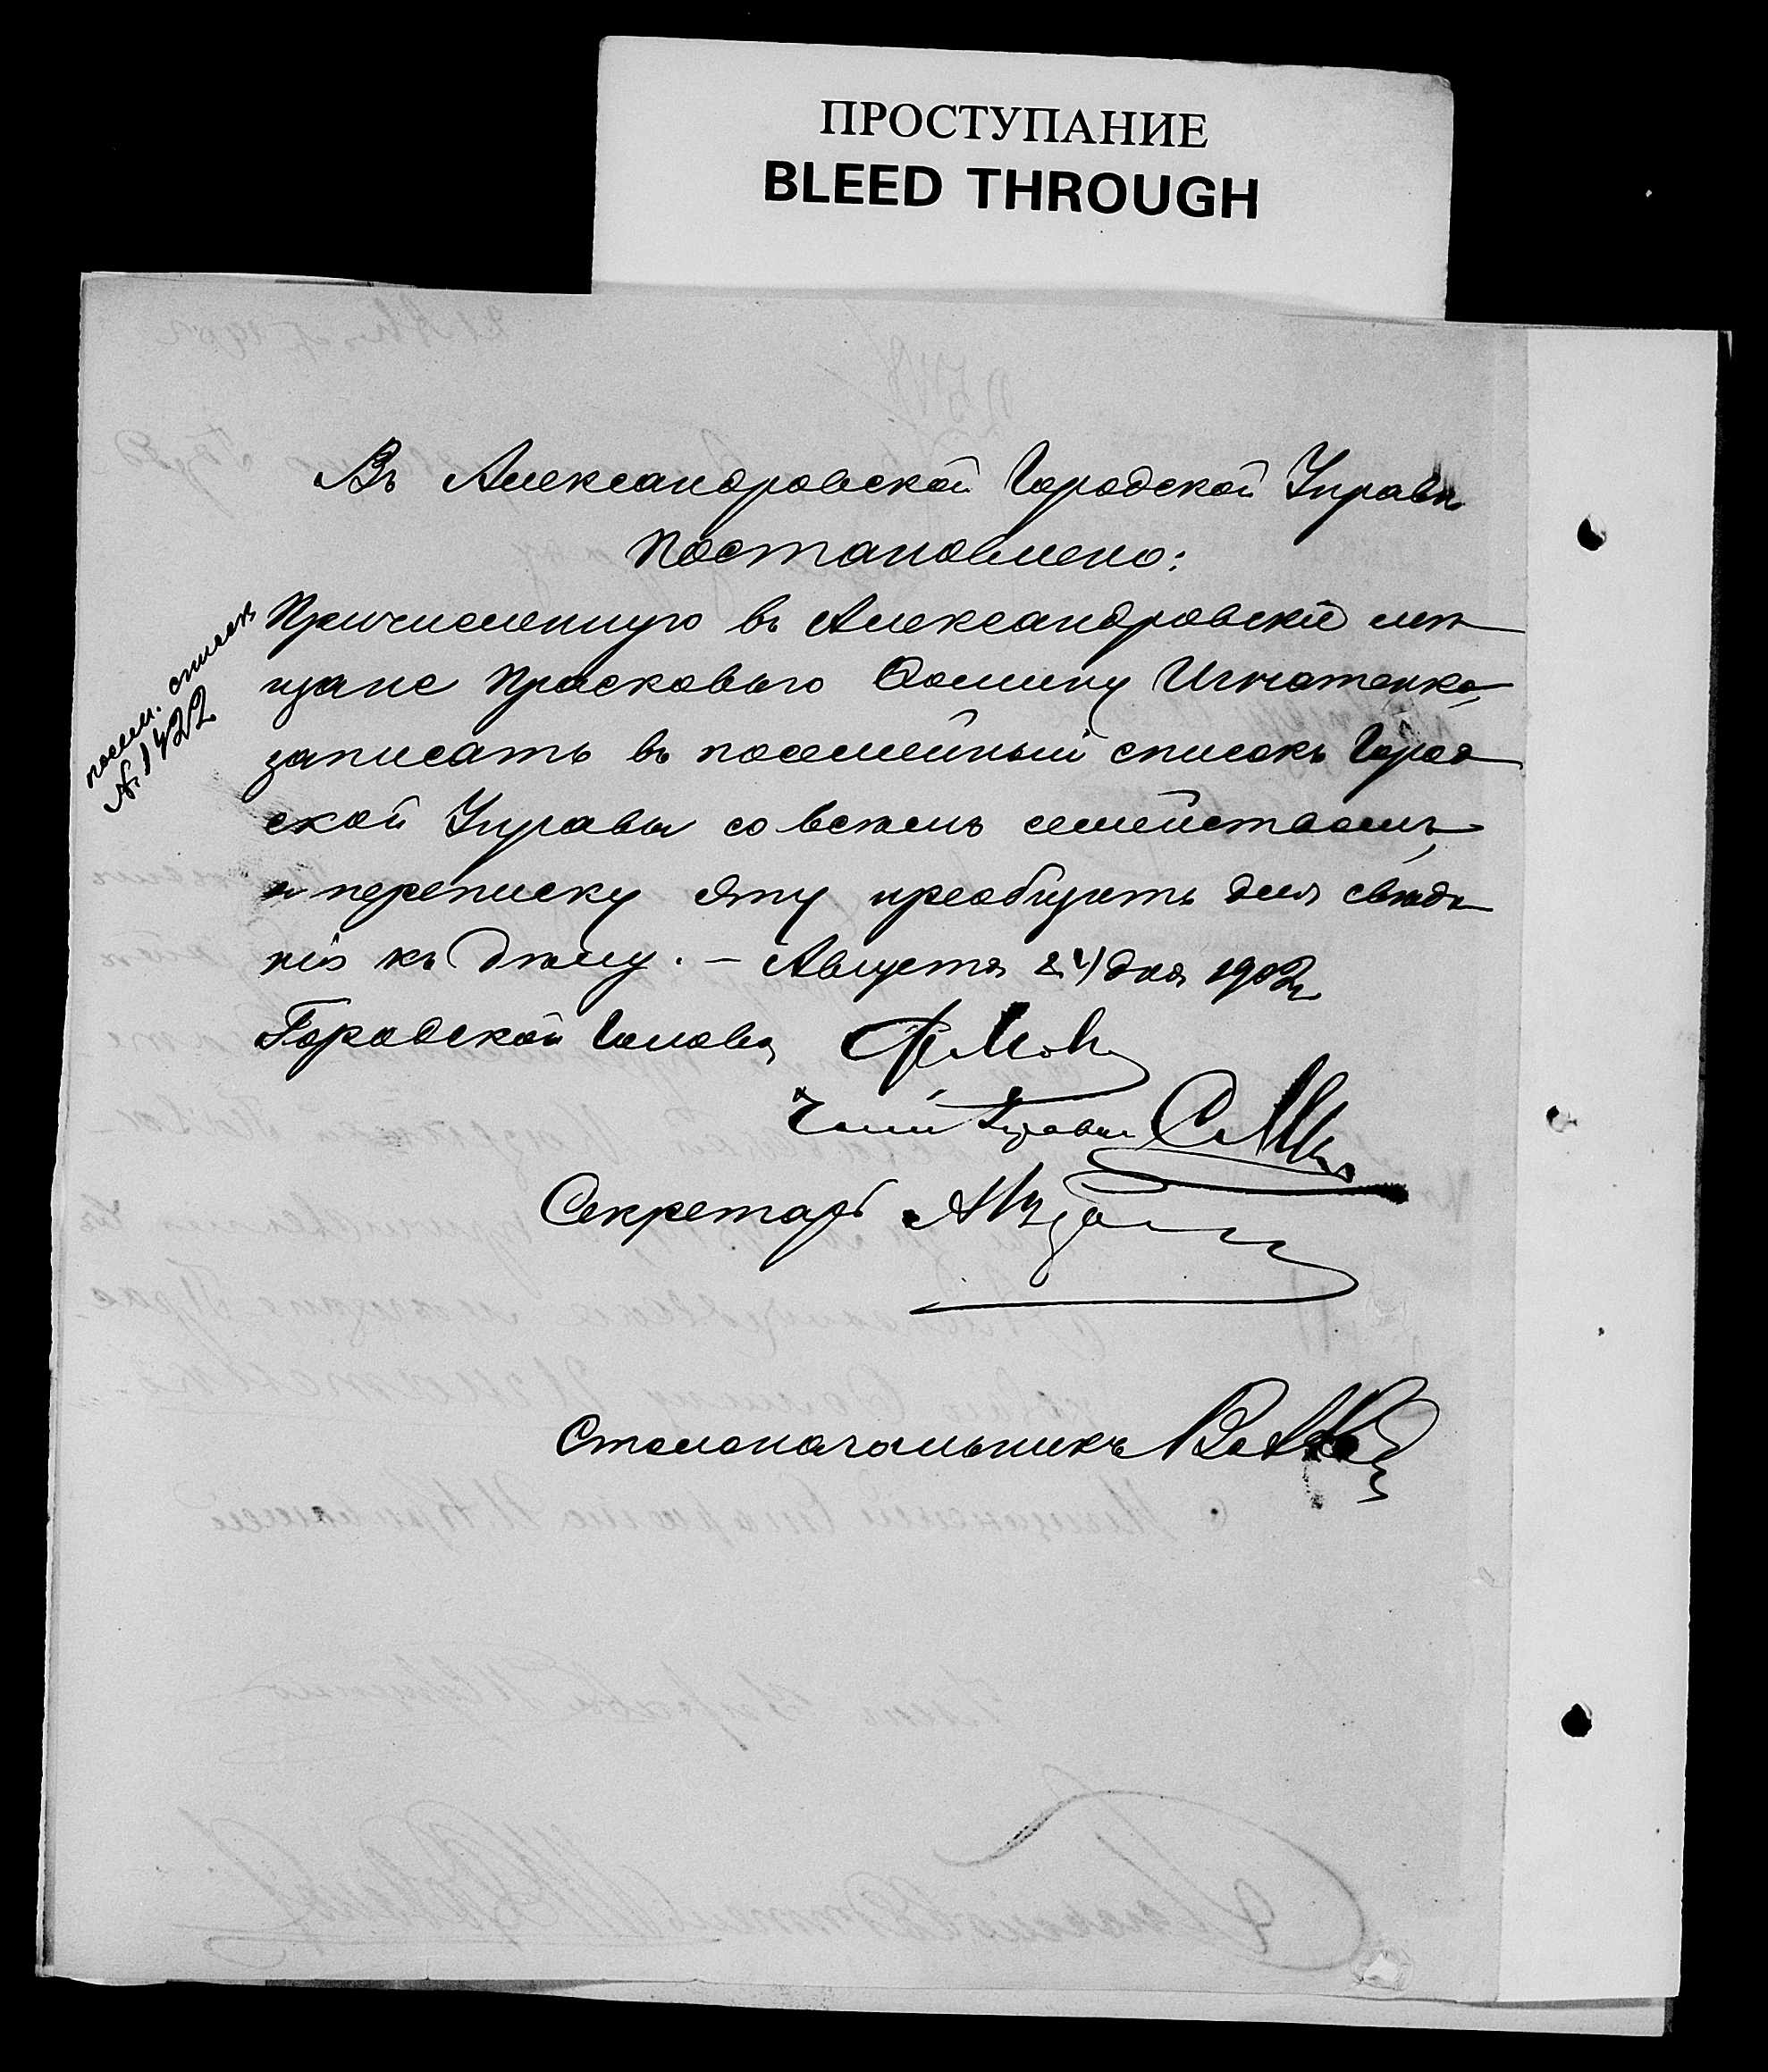 ПРОСТУПАНИЕ
BLEED THROUGH
Въ Александровской Городской Управѣ
Постановлено:
Причисленную въ Александровскіе мѣ
щане Просковью Фомину Игнатенко,
записать въ посемейный списокъ Город
ской Управы со всѣмъ семействомъ,
и переписку эту преобщить для свѣдѣ
нія къ дѣлу. – Августа 24 дня 1902 г.
посем. списокъ
№ 1422
Городской Голова
Членъ Управы
Секретарь
Столоначальникъ